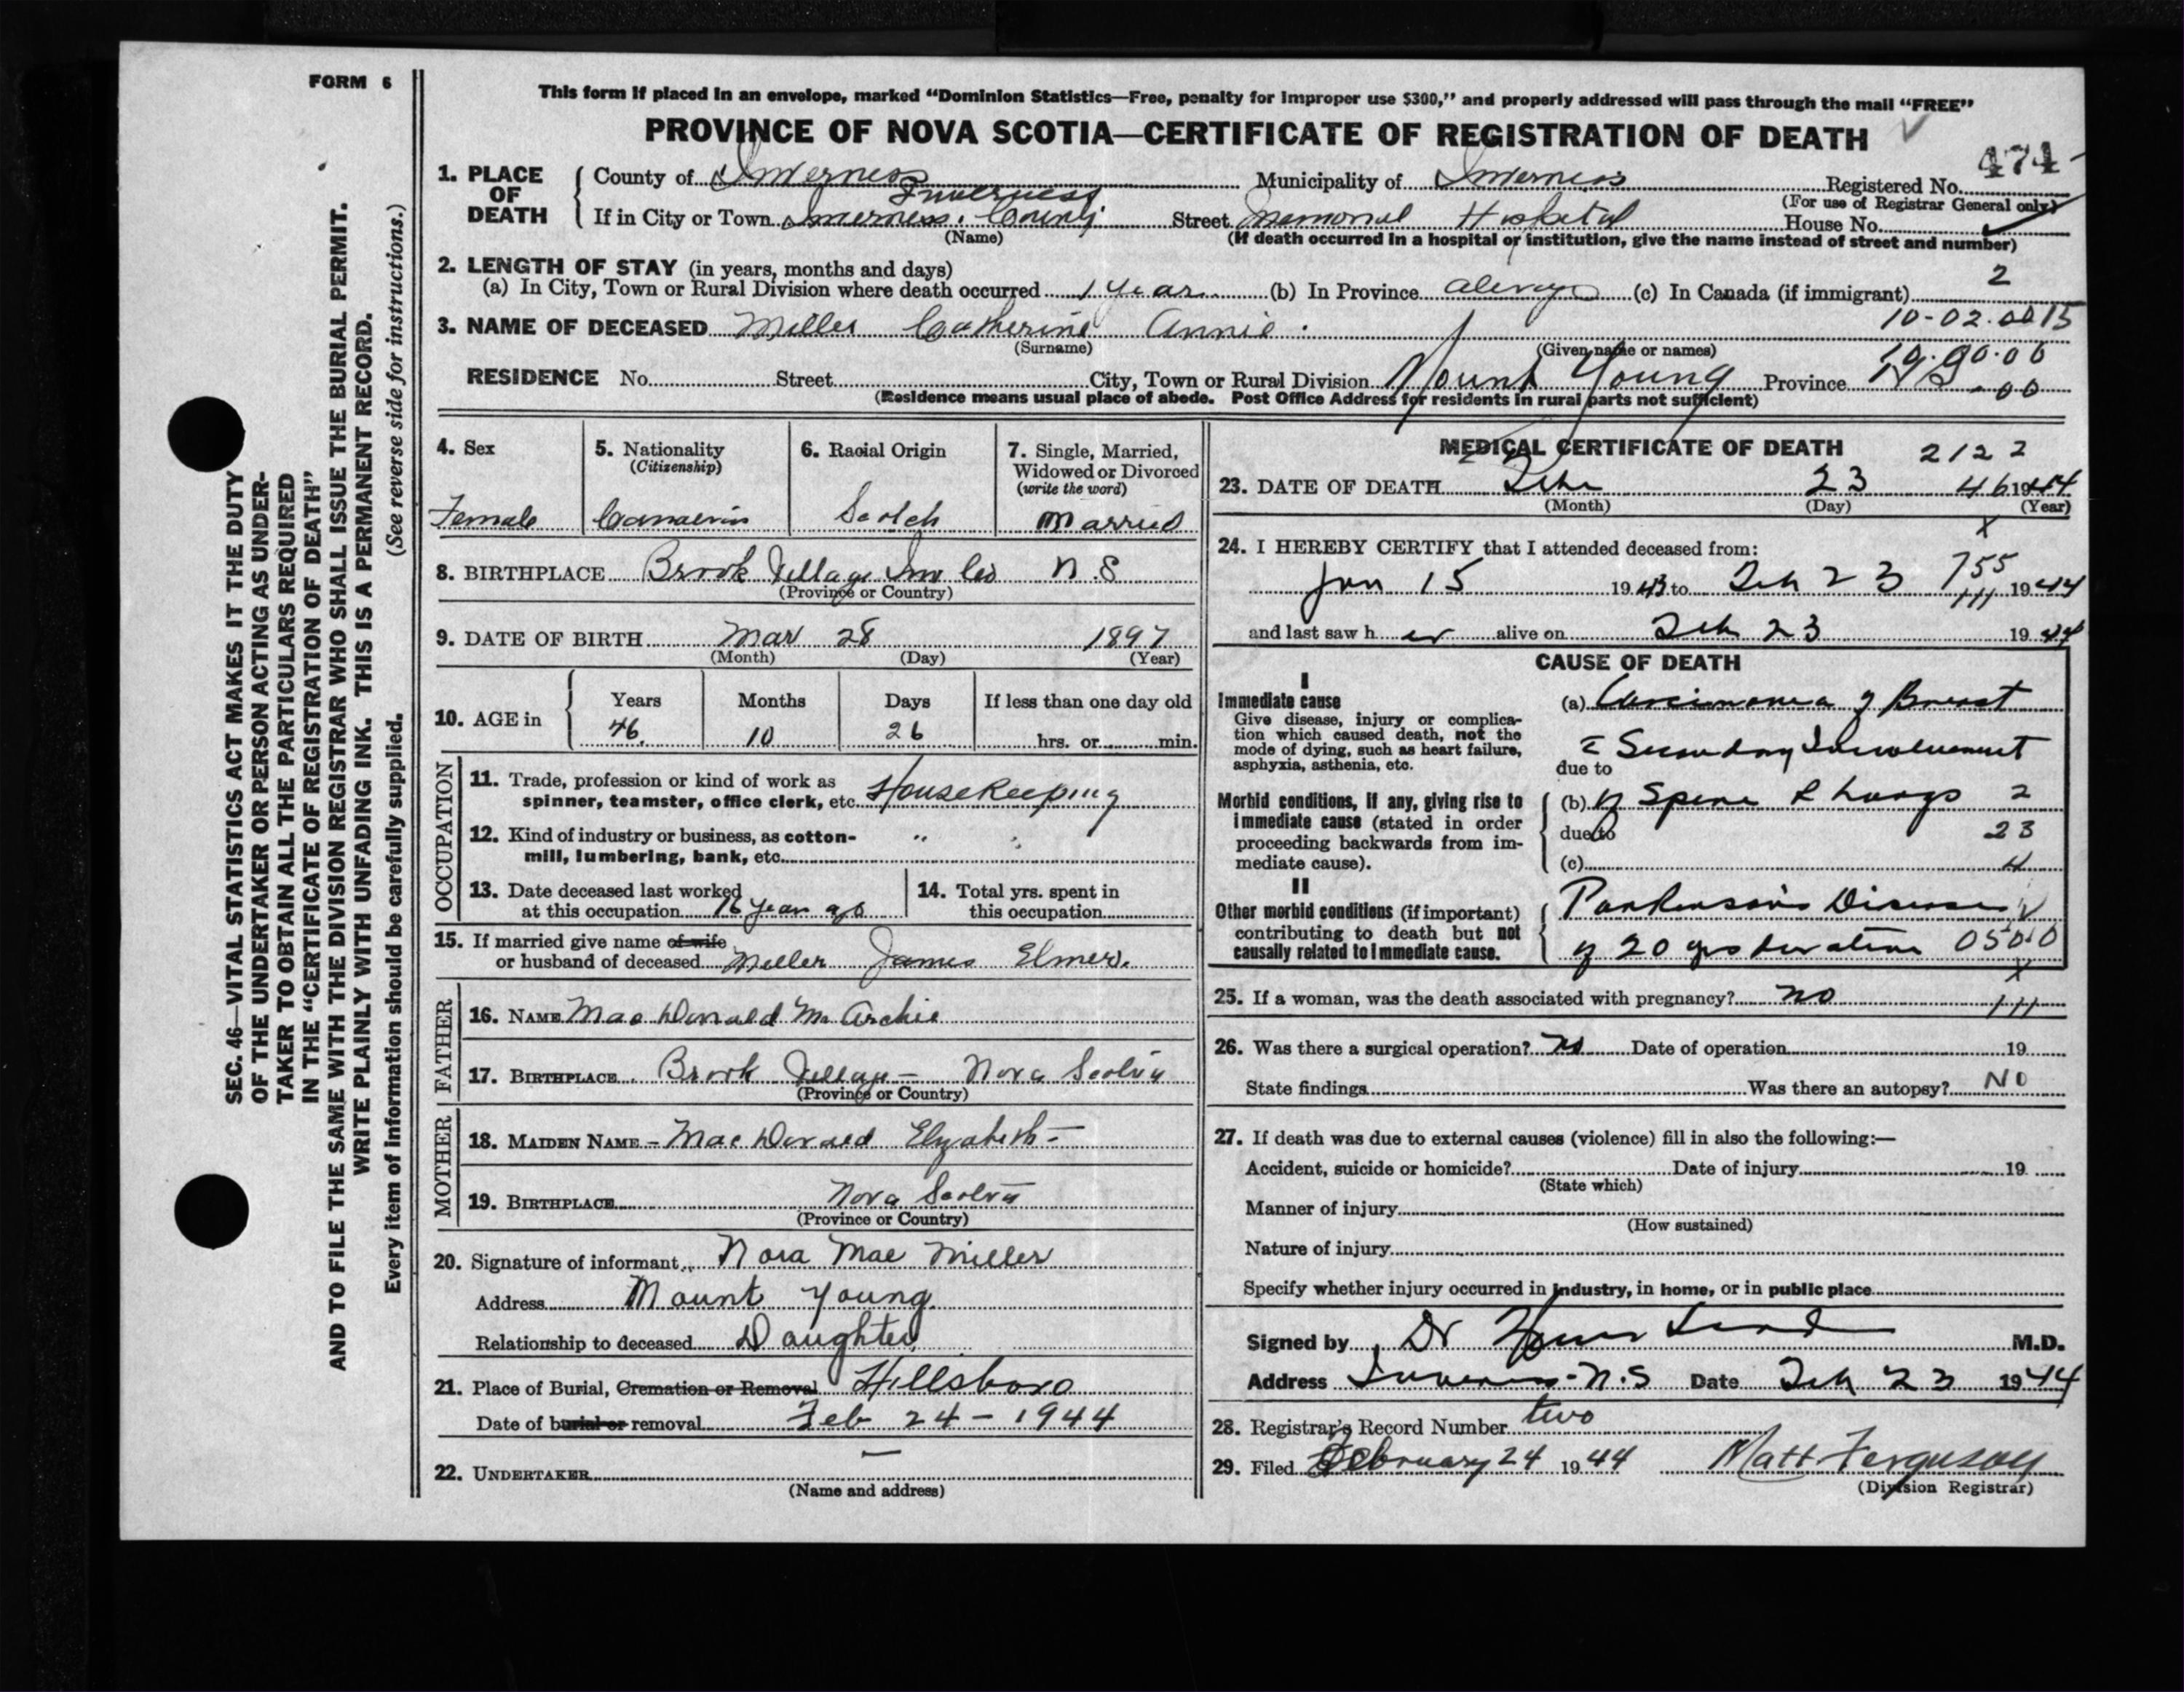 FORM 6
This form if placed in an envelope, marked “Dominion Statistics—Free, penalty for improper use $300,” and properly addressed will pass through the mail “FREE”
PROVINCE OF NOVA SCOTIA—CERTIFICATE OF REGISTRATION OF DEATH
474
1. PLACE OF DEATH
County of Inverness Municipality of Inverness Registered No.
(For use of Registrar General only)
Inverness
If in City or Town Inverness County Street Memorial Hospital House No.
(Name) (If death occurred in a hospital or institution, give the name instead of street and number)
2. LENGTH OF STAY (in years, months and days) 2
(a) In City, Town or Rural Division where death occurred 1 year (b) In Province always (c) In Canada (if immigrant)
10-02.0015
3. NAME OF DECEASED Miller Catherine Annie
(Surname) (Given name or names)
RESIDENCE No. Street City, Town or Rural Division Mount Young Province N.S.
(Residence means usual place of abode. Post Office Address for residents in rural parts not sufficient)
4. Sex
Female
5. Nationality
(Citizenship)
Canadian
6. Racial Origin
Scotch
7. Single, Married,
Widowed or Divorced
(write the word)
Married
8. BIRTHPLACE Brook Village Inv Co N S
(Province or Country)
9. DATE OF BIRTH Mar 28 1897
(Month) (Day) (Year)
10. AGE in
Years Months Days If less than one day old
46 10 26 hrs. or min.
OCCUPATION
11. Trade, profession or kind of work as
spinner, teamster, office clerk, etc. Housekeeping
12. Kind of industry or business, as cotton-
mill, lumbering, bank, etc. " "
13. Date deceased last worked
at this occupation 16 year ago
14. Total yrs. spent in
this occupation
15. If married give name of wife
or husband of deceased Miller James Elmer.
FATHER
16. NAME Mac Donald Archie
17. BIRTHPLACE Brook Village — Nova Scotia
(Province or Country)
MOTHER
18. MAIDEN NAME – Mac Donald Elizabeth –
19. BIRTHPLACE Nova Scotia
(Province or Country)
20. Signature of informant Nora Mae Miller
Address Mount Young
Relationship to deceased Daughter
21. Place of Burial, Cremation or Removal Hillsboro
Date of burial or removal Feb 24 – 1944
22. UNDERTAKER —
(Name and address)
MEDICAL CERTIFICATE OF DEATH 2122
23. DATE OF DEATH Feb 23 46 1944
(Month) (Day) (Year)
24. I HEREBY CERTIFY that I attended deceased from:
755
Jan 15 1943 to Feb 23 1944
111
and last saw her alive on Feb 23 1944
CAUSE OF DEATH
I
Immediate cause
Give disease, injury or complica-
tion which caused death, not the
mode of dying, such as heart failure,
asphyxia, asthenia, etc.
(a) Carcinoma of Breast
c Secondary Involvement
due to
Morbid conditions, if any, giving rise to
immediate cause (stated in order
proceeding backwards from im-
mediate cause).
(b) of Spine & Lungs 2
due to 23
(c) 4
II
Other morbid conditions (if important)
contributing to death but not
causally related to immediate cause.
Parkinson's Disease
of 20 yrs duration 050.0
25. If a woman, was the death associated with pregnancy? no 111
26. Was there a surgical operation? No Date of operation 19
State findings Was there an autopsy? NO
27. If death was due to external causes (violence) fill in also the following:—
Accident, suicide or homicide? Date of injury 19
(State which)
Manner of injury
(How sustained)
Nature of injury
Specify whether injury occurred in industry, in home, or in public place
Signed by Dr M.D.
Address Inverness - N.S Date Feb 23 1944
28. Registrar's Record Number two
29. Filed February 24 1944 Matt Ferguson
(Division Registrar)
SEC. 46—VITAL STATISTICS ACT MAKES IT THE DUTY
OF THE UNDERTAKER OR PERSON ACTING AS UNDER-
TAKER TO OBTAIN ALL THE PARTICULARS REQUIRED
IN THE “CERTIFICATE OF REGISTRATION OF DEATH”
AND TO FILE THE SAME WITH THE DIVISION REGISTRAR WHO SHALL ISSUE THE BURIAL PERMIT.
WRITE PLAINLY WITH UNFADING INK. THIS IS A PERMANENT RECORD.
Every item of information should be carefully supplied. (See reverse side for instructions.)